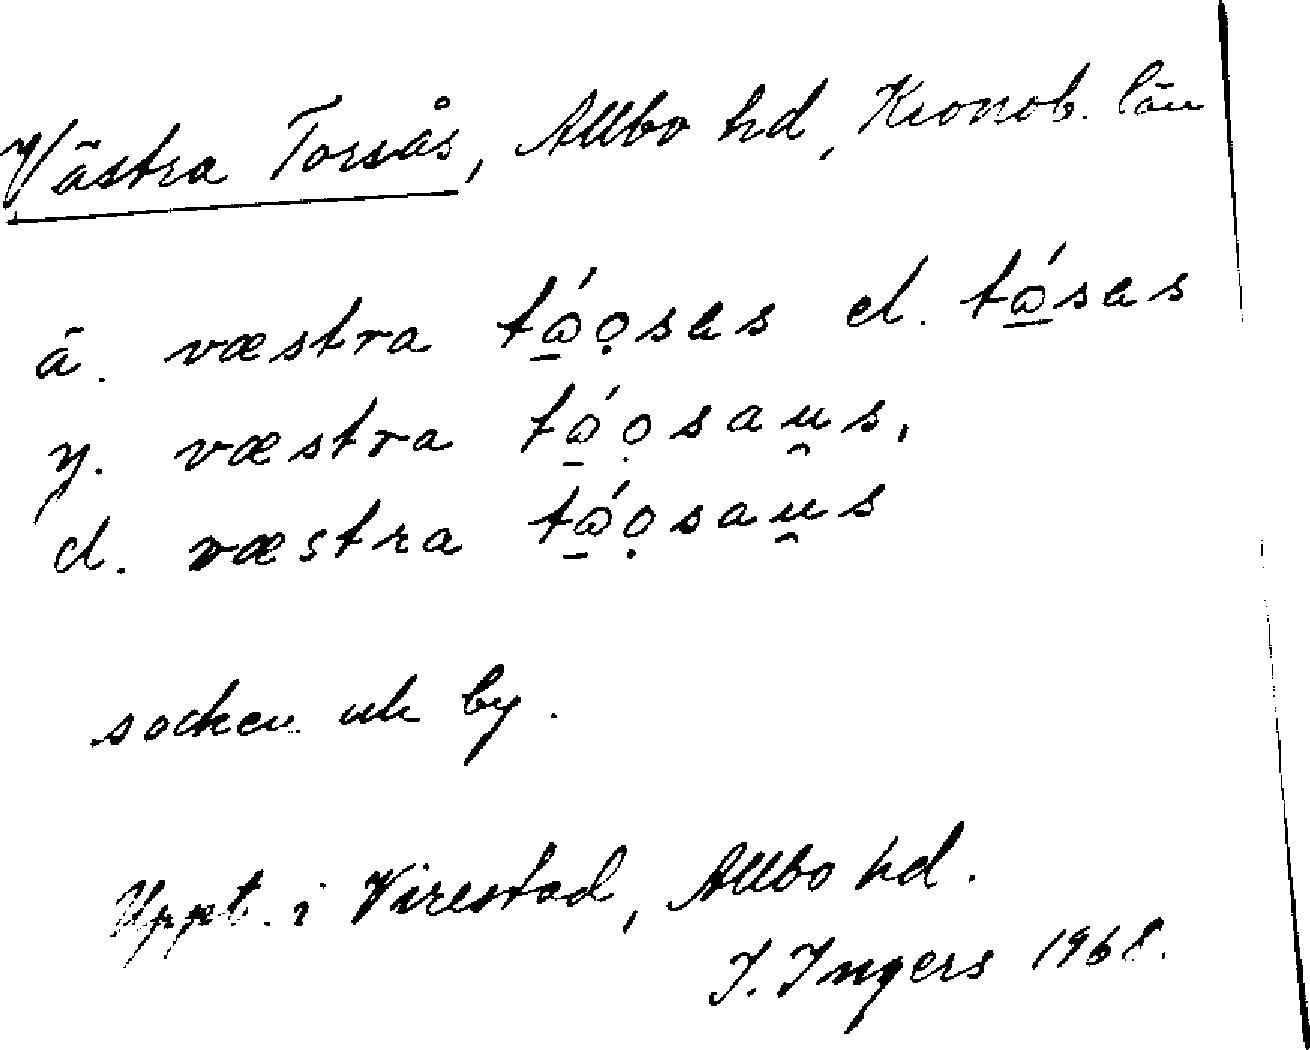 Västra Torsås, Allbo hd, Kronob. län
ä. væstra tώ̲ọsas el. tώ̲sas
y. væstra tώ̲ọsau̯s,
d. væstra tώ̲ọsau̯s
socken uk by.
Uppt. i Virestad, Allbo hd.
I. Ingers 1968.